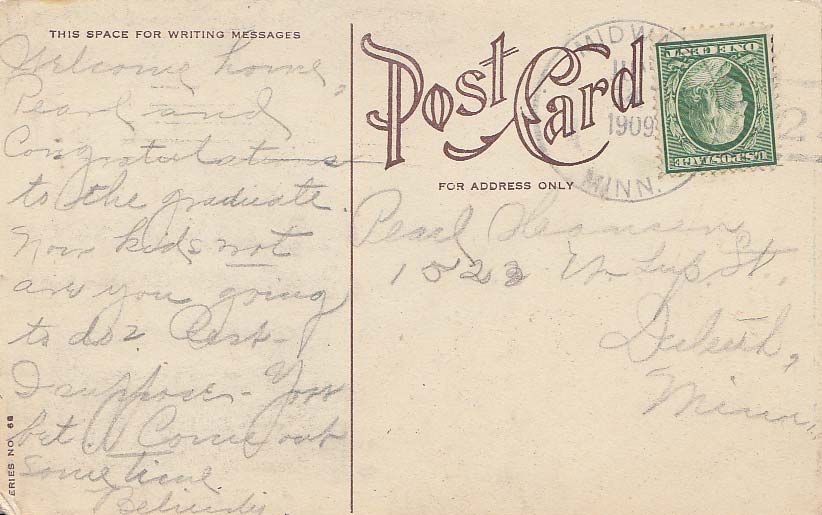 THIS SPACE FOR WRITING MESSAGES
Welcome home,
Pearl and
Congratulations
to the graduate.
Now kids not
are you going
to do? Rest-
I suppose - You
bet. Come out
some time
POST CARD
FOR ADDRESS ONLY
MIDWA
1909
MINN.
ONE CENT
U.S. POSTAGE
2
Pearl
1523 W. Sup. St.,
Duluth,
Minn.
ERIES NO. 68